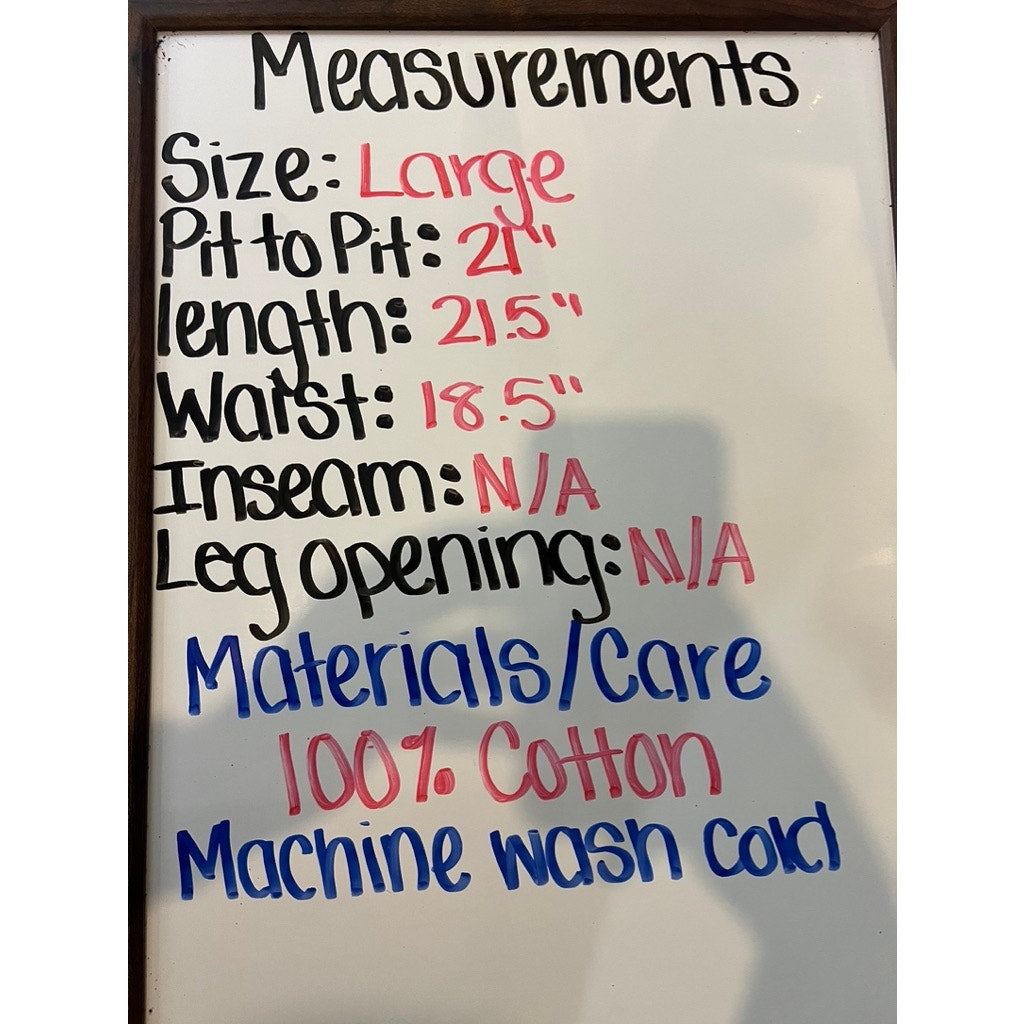 Measurements
Size: Large
Pit to Pit: 21"
length: 21.5"
Waist: 18.5"
Inseam: N/A
Leg opening: N/A
Materials/Care
100% Cotton
Machine wash cold